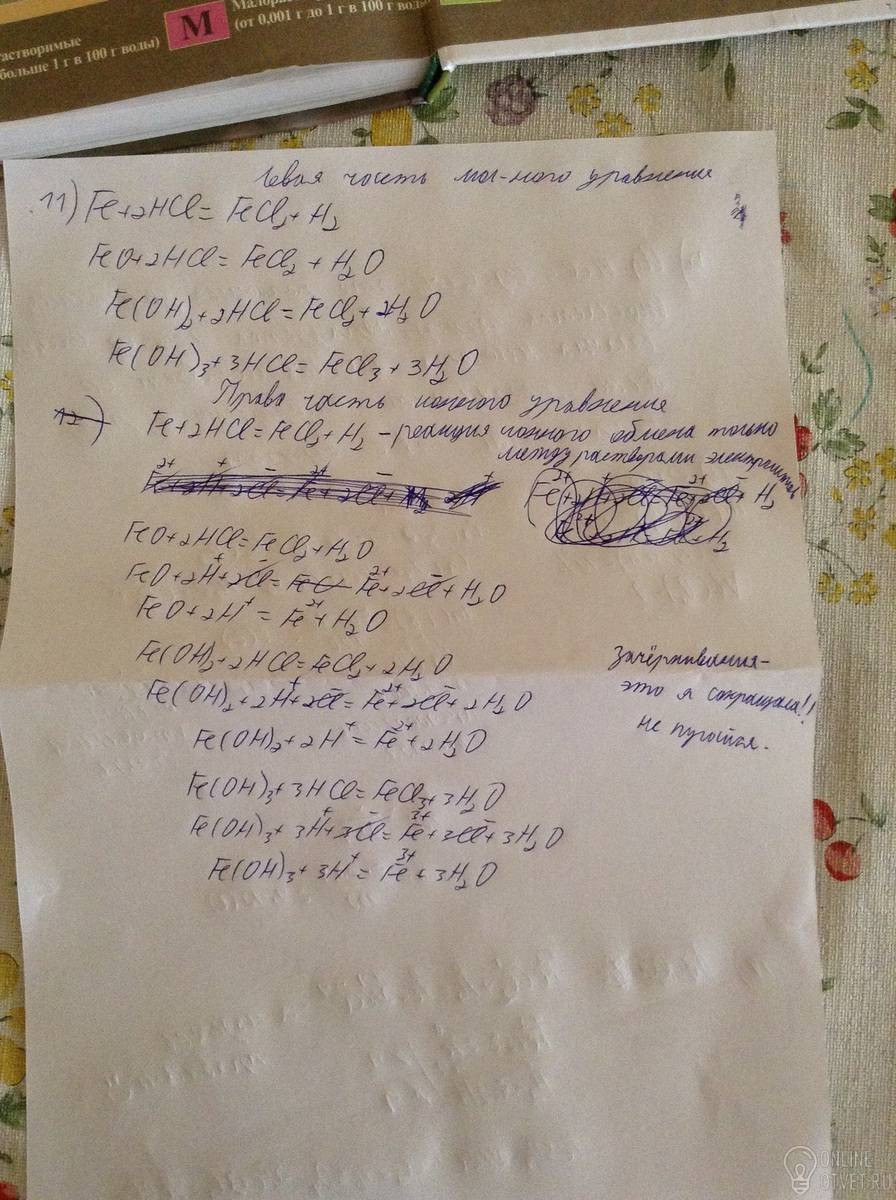 астворимые
больше 1 г в 100 г воды)
М
Малора
(от 0,001 г до 1 г в 100 г воды
Левая часть мол-ного уравнения
11) Fe+2HCl=FeCl2+H2
FeO+2HCl=FeCl2+H2O
Fe(OH)2+2HCl=FeCl2+2H2O
Fe(OH)3+3HCl=FeCl3+3H2O
Права часть ионного уравнения
12)
Fe+2HCl=FeCl2+H2 - реакция ионного обмена только
между растворами электролитов
FeO+2HCl=FeCl2+H2O
FeO+2H⁺+2Cl⁻=FeO Fe²⁺+2Cl⁻+H2O
FeO+2H⁺=Fe²⁺+H2O
Fe(OH)2+2HCl=FeCl2+2H2O
Fe(OH)2+2H⁺+2Cl⁻=Fe²⁺+2Cl⁻+2H2O
Fe(OH)2+2H⁺=Fe²⁺+2H2O
Зачёркивания-
это я сокращала!!
не пугайся.
Fe(OH)3+3HCl=FeCl3+3H2O
Fe(OH)3+3H⁺+3Cl⁻=Fe³⁺+3Cl⁻+3H2O
Fe(OH)3+3H⁺=Fe³⁺+3H2O
ONLINE
OTVET.RU